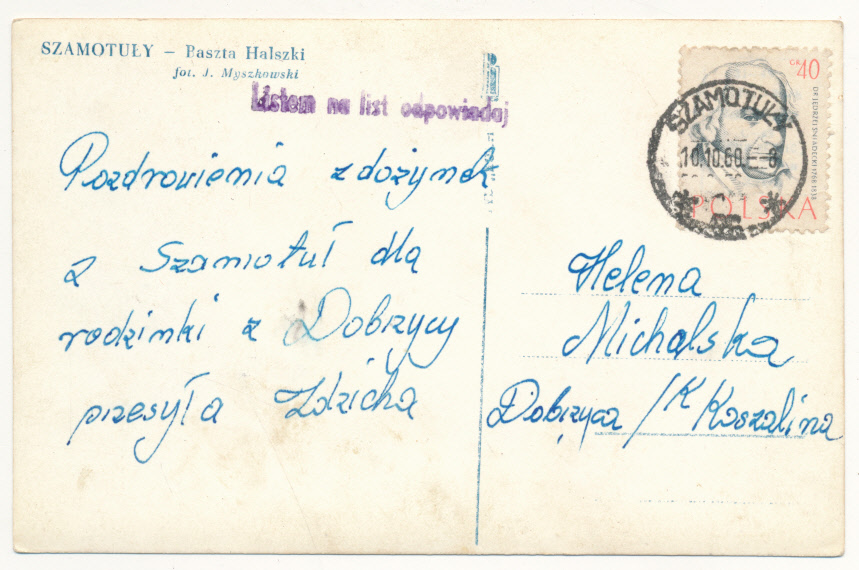 SZAMOTUŁY – Baszta Halszki
fot. J. Myszkowski
Listem na list odpowiadaj
Pozdrowienia z dożynek
z Szamotuł dla
rodzinki z Dobrzycy
przesyła Zdzicha
GR 40
DR JĘDRZEJ ŚNIADECKI 1768-1838
POLSKA
SZAMOTUŁY
10.10.60.-8
Helena
Michalska
Dobrzyca /K Koszalina